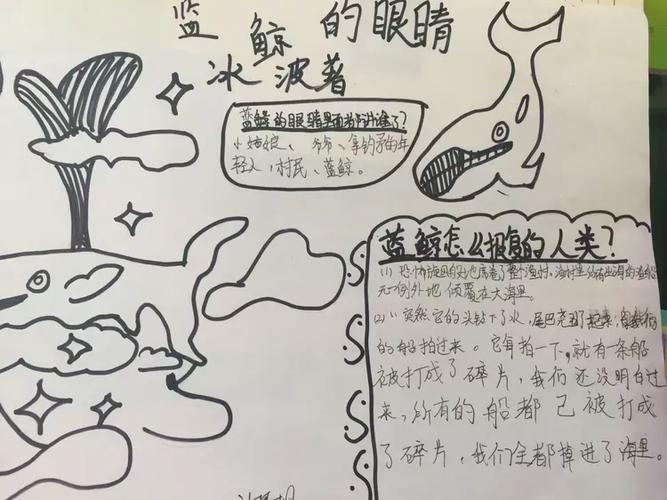 蓝鲸的眼睛
冰波著
蓝鲸的眼睛里面分别讲谁了?
小姑娘、爷爷、拿钓矛的年
轻人,村民、蓝鲸。
蓝鲸怎么报复的人类?
(1)恐怖旋风般地席卷了整个渔村,海村里所有出海的渔船
无一例外地倾覆在大海里。
(2)突然它的头钻下了水,尾巴竞了起来,朝我们
的船拍过来。它每拍一下,就有一条船
被打成了碎片,我们还没明白过
来,所有的船都已被打成
了碎片,我们全都掉进了海里。